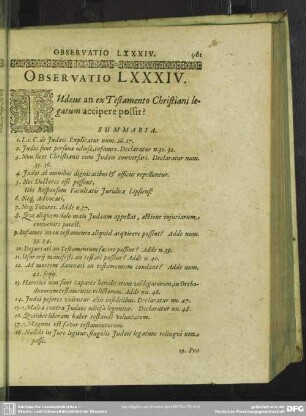 OBSERVATIO LXXXIV. 961
OBSERVATIO LXXXIV.
IUdæus an ex Testamento Christiani le-
gatum accipere possit?
SUMMARIA.
1. L. 1. C. de Judæis. Explicatur num. 26. 27.
2. Judæi sunt personæ odiosæ, infames. Declaratur n. 31. 32.
3. Non licet Christianis cum Judæis conversari. Declaratur num.
35. 36.
4. Judæi ab omnibus dignitatibus & officiis repelluntur.
5. Nec Doctores esse possunt.
Ubi Responsum Facultatis Juridicæ Lipsiensis
6. Neq; Advocati,
7. Neq; Tutores. Adde n. 37.
8. Qui aliquem dolo malo Judæum appellat, actione injuriarum
conveniri potest.
9. Infames an ex testamento aliquid acquirere possint? Adde num.
33. 34.
10. Deportati an Testamentum facere possint? Adde n. 39.
11. Usurarij manifesti an testari possint? Adde n. 40.
12. Ad mortem damnati an testamentum condant? Adde num.
42. seqq.
13. Hæretici non sunt capaces hæreditatum vel legatorum, in Ortho-
doxorum testamentis relictorum. Adde nu. 46.
14. Judæi pejores videntur aliis infidelibus. Declaratur nu. 47.
15. Multa contra Judæos odiosa leguntur. Declaratur nu. 48.
16. Quilibet liberam habet testandi voluntatem.
17. Magnus est favor testamentorum.
18. Nullibi in Jure legitur, singulis Judæis legatum relinqui non
posse.
19. Pro